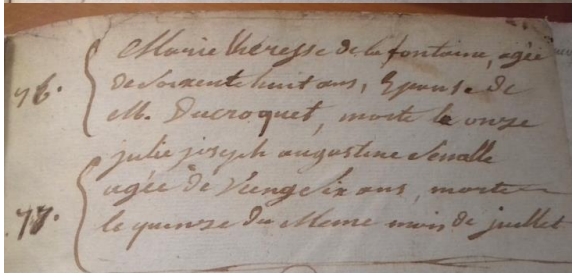 Marie théresse de la fontaine, agée
76. de soixente huit ans, Epouse de
M. Ducroquet, morte le onze
julie joseph augustine
agée de vingt six ans, morte
77. le quinze du meme mois de juillet